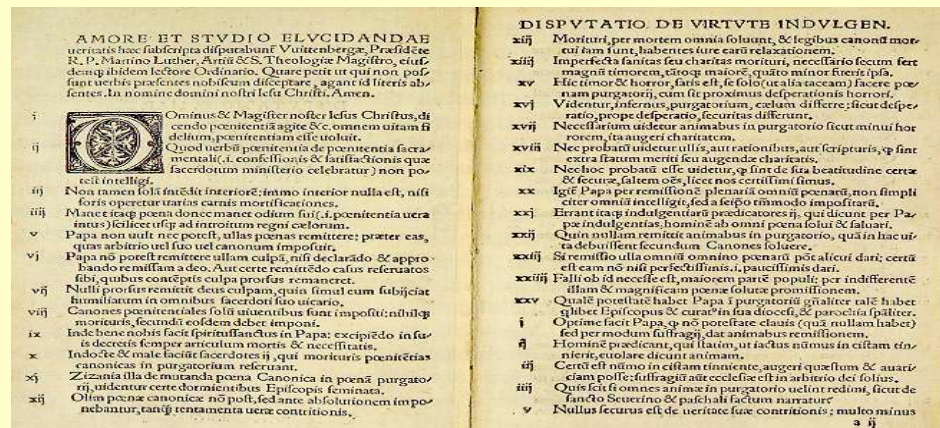 AMORE ET STVDIO ELVCIDANDAE
ueritatis hæc subscripta disputabunť Vuittenbergæ, Præsidẽte
R. P. Martino Luther, Artiũ & S. Theologiæ Magistro, eius/
demq; ibidem lectore Ordinario. Quare petit ut qui non pos/
sunt uerbis præsentes nobiscum disceptare, agant id literis ab/
sentes. In nomine domini nostri Iesu Christi. Amen.
i Ominus & Magister noster Iesus Christus, di
cendo pœnitentiã agite &c. omnem uitam fi
delium, pœnitentiam esse uoluit.
ij Quod uerbũ pœnitentia de pœnitentia sacra/
mentali (.i. confessionis & satisfactionis quæ
sacerdotum ministerio celebratur) non po/
test intelligi.
iij Non tamen solã intẽdit interiorẽ: immo interior nulla est, nisi
foris operetur uarias carnis mortificationes.
iiij Manet itaq; pœna donec manet odium sui (.i. pœnitentia uera
intus) scilicet usq; ad introitum regni cælorum.
v Papa non uult nec potest, ullas pœnas remittere: præter eas,
quas arbitrio uel suo uel canonum imposuit.
vj Papa nõ potest remittere ullam culpã, nisi declarãdo & appro/
bando remissam a deo. Aut certe remittẽdo casus reseruatos
sibi, quibus contẽptis culpa prorsus remaneret.
vij Nulli prorsus remittit deus culpam, quin simul eum subijciat
humiliatum in omnibus sacerdoti suo uicario.
viij Canones pœnitentiales solũ uiuentibus sunt impositi: nihilq;
morituris, secundũ eosdem debet imponi.
ix Inde bene nobis facit spiritussanctus in Papa: excipiẽdo in su/
is decretis semper articulum mortis & necessitatis.
x Indocte & male faciũt sacerdotes ij, qui morituris pœnitẽtias
canonicas in purgatorium reseruant.
xj Zizania illa de mutanda pœna Canonica in pœnã purgato/
rij, uidentur certe dormientibus Episcopis seminata.
xij Olim pœnæ canonicæ nõ post, sed ante absolutionem impo/
nebantur, tanq̃ tentamenta ueræ contritionis.
DISPVTATIO DE VIRTVTE INDVLGEN.
xiij Morituri, per mortem omnia soluunt, & legibus canonũ mor/
tui iam sunt, habentes iure earũ relaxationem.
xiiij Imperfecta sanitas seu charitas morituri, necessario secum fert
magnũ timorem, tãtoq; maiorẽ, quãto minor fuerit ipsa.
xv Hic timor & horror, satis est, se solo (ut alia taceam) facere pœ/
nam purgatorij, cum sit proximus desperationis horrori.
xvj Videntur, infernus, purgatorium, cælum differre: sicut despe/
ratio, prope desperatio, securitas differunt.
xvij Necessarium uidetur animabus in purgatorio sicut minui hor
rorem, ita augeri charitatem.
xviij Nec probatũ uidetur ullis, aut rationibus, aut scripturis, q̃ sint
extra statum meriti seu augendæ charitatis.
xix Nec hoc probatũ esse uidetur, q̃ sint de sua beatitudine certæ
& securæ, saltem oẽs, licet nos certissimi simus.
xx Igiť Papa per remissionẽ plenariã omniũ pœnarũ, non simpli
citer omniũ intelligit, sed a seipõ tm̃modo impositarũ.
xxj Errant itaq; indulgentiarũ prædicatores ij, qui dicunt per Pa/
pæ indulgentias, hominẽ ab omni pœna solui & saluari.
xxij Quin nullam remittit animabus in purgatorio, quã in hac ui/
ta debuissent secundum Canones soluere.
xxiij Si remissio ulla omniũ omnino pœnarũ põt alicui dari; certũ
est eam nõ nisi perfectissimis .i. paucissimis dari.
xxiiij Falli ob id necesse est, maiorem partẽ populi: per indifferentẽ
illam & magnificam pœnæ solutæ promissionem.
xxv Qualẽ potestatẽ habet Papa ĩ purgatoriũ gñaliter talẽ habet
q̃libet Episcopus & curat9 in sua diocesi, & parochia spãliter.
i Optime facit Papa, q̃ nõ potestate clauis (quã nullam habet)
sed per modum suffragij, dat animabus remissionem.
ij Hominẽ prædicant, qui statim, ut iactus nũmus in cistam tin/
nierit, euolare dicunt animam.
iij Certũ est nũmo in cistam tinniente, augeri quæstum & auari/
ciam posse; suffragiũ aũt ecclesiæ est in arbitrio dei solius.
iiij Quis scit si omnes animæ in purgatorio uelint redimi, sicut de
sancto Seuerino & paschali factum narratur
v Nullus securus est de ueritate suæ contritionis; multo minus
a ij